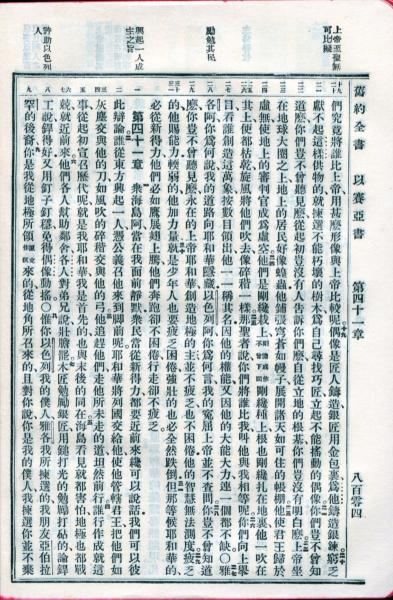 舊約全書　以賽亞書　第四十一章　八百零四
上帝至聖無可比擬
們究竟將誰比上帝、用甚麼形像與上帝比較呢。偶像是匠人鑄造、銀匠用金包裹、爲他鑄造銀鍊。窮乏
獻不起這樣供物的、就揀選不能朽壞的樹木、爲自己尋找巧匠立起不能搖動的偶像。你們豈不曾知
道麼、你們豈不曾聽見麼、從起初豈沒有人告訴你們麼、自從立地的根基、你們豈沒有明白麼。上帝坐
在地球大圈之上、地上的居民好像蝗蟲、他鋪張穹蒼如幔子、展開諸天如可住的帳棚。他使君王歸於
虛無、使地上的審判官成爲虛空。他們是剛纔栽上、剛纔種上、根也剛纔扎在地裏、他一吹在
其上、便都枯乾、旋風將他們吹去、像碎稭一樣。那聖者說、你們將誰比我、叫他與我相等呢。你們向上舉
勵勉其民
目看、誰創造這萬象、按數目領出、他一一稱其名、因他的權能、又因他的大能大力、連一個都不缺○雅
各阿、你爲何說、我的道路向耶和華隱藏、以色列阿、你爲何言、我的寃屈上帝並不查問。你豈不曾知道
麼、你豈不曾聽見麼、永在的上帝耶和華創造地極的主、並不疲乏、也不困倦、他的智慧無法測度。疲乏
的他賜能力、軟弱的他加力量。就是少年人也要疲乏困倦、強壯的也必全然跌倒。但那等候耶和華的、
必從新得力、他們必如鷹展翅上騰、他們奔跑卻不困倦、行走卻不疲乏。
興起一人成主之旨
第四十一章　衆海島阿、當在我面前靜默、衆民當從新得力、都要近前來纔可以說話、我們可以彼
此辯論。誰從東方興起一人、憑公義召他來到脚前呢、耶和華將列國交給他、使他管轄君王、把他們如
灰塵交與他的刀、如風吹的碎稭交與他的弓。他追趕他們、走他所未走的道、坦然前行。誰行作成就這
事、從起初宣召歷代呢、就是我耶和華、我是首先的、也與末後的同在。海島看見就都害怕、地極也都戰
兢、就近前來。他們各人幫助鄰舍、各人對弟兄說、壯膽罷。木匠勉勵銀匠、用錘打光的勉勵打砧的、論銲
許助以色列人
工說、銲得好、又用釘子釘穩、免得偶像動搖○惟你以色列我的僕人、雅各我所揀選的、我朋友亞伯拉
罕的後裔、你是我從地極所領來的、從地角所召來的、且對你說、你是我的僕人、我揀選你、並不棄